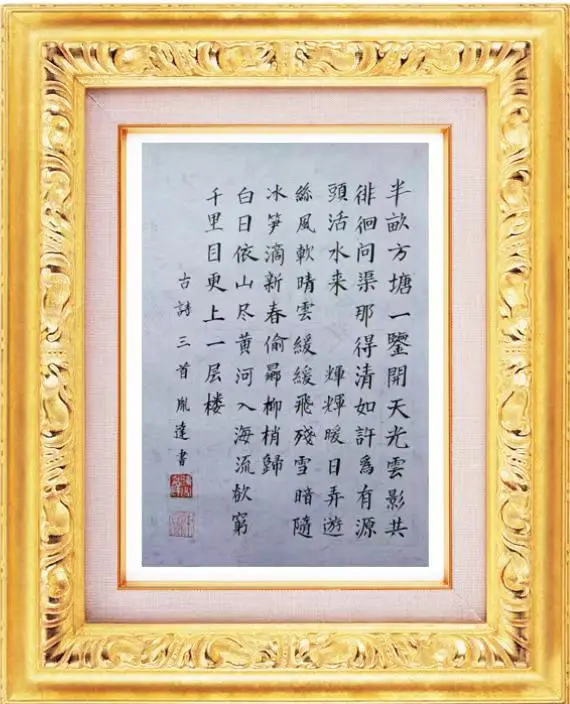 半畝方塘一鑒開天光雲影共
徘徊問渠那得清如許爲有源
頭活水来 輝輝暖日弄遊
絲風軟晴雲緩緩飛殘雪暗隨
冰笋滴新春偷柳梢歸
白日依山尽黄河入海流欲窮
千里目更上一层楼
古詩三首胤達書